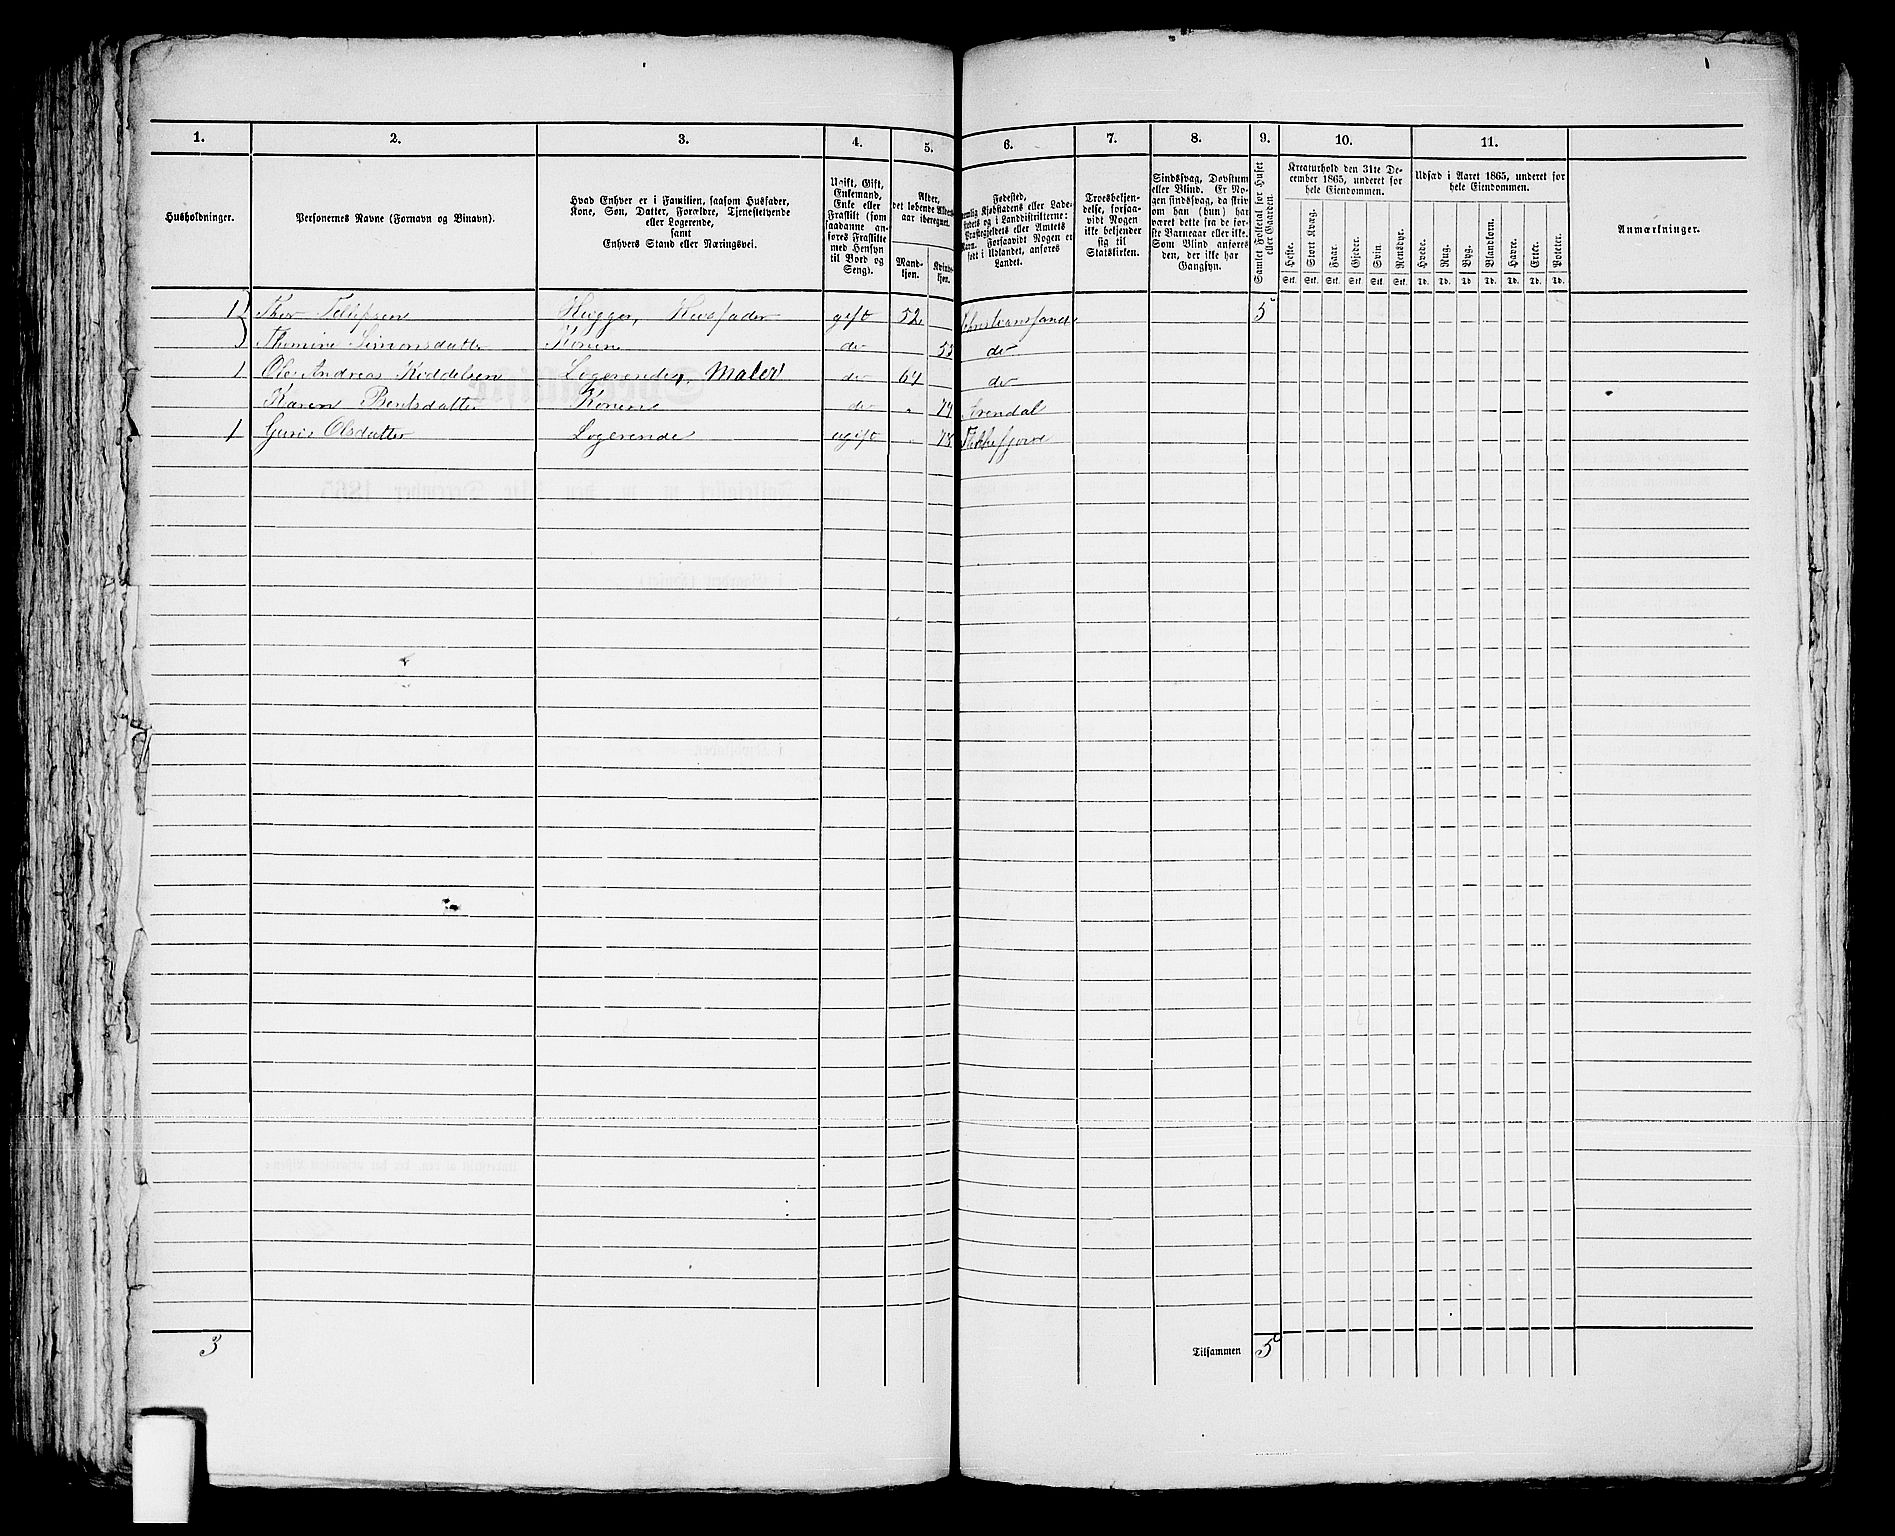 1. 2. 3. 4. 5. 6. 7. 8. 9. 10. 11.
Husholdninger.
Personernes Navne (Fornavn og Binavn).
Hvad Enhver er i Familien, saasom Husfader,
Kone, Søn, Datter, Forældre, Tjenestetyende
eller Logerende,
samt
Enhvers Stand eller Næringsvei.
Ugift, Gift,
Enkemand,
Enke eller
Fraskilt (som
saadanne an-
føres Fraskilte
med Hensyn
til Bord og
Seng).
Alder,
det løbende Alders-
aar iberegnet.
Mand-
kjøn.
Kvinde-
kjøn.
Fødested,
nemlig Kjøbstadens eller Lade-
stedets og i Landdistrikterne:
Præstegjeldets eller Amtets
Navn. Forsaavidt Nogen er
født i Udlandet, anføres
Landet.
Troesbekjen-
delse, forsaa-
vidt Nogen
ikke bekjender
sig til
Statskirken.
Sindssvag, Døvstum
eller Blind. Er No-
gen sindssvag, da skriv
om han (hun) har
været dette fra de før-
ste Barneaar eller ikke.
Som Blind anføres
den, der ikke har
Gangsyn.
Samlet Folketal for Huset
eller Gaarden.
Kreaturhold den 31te De-
cember 1865, underet for
hele Eiendommen.
Heste. Stort Kvæg. Faar. Gjeder. Svin. Rensdyr.
Stk. Stk. Stk. Stk. Stk. Stk.
Udsæd i Aaret 1865, underet for
hele Eiendommen.
Hvede. Rug. Byg. Blandkorn. Havre. Erter. Poteter.
Td. Td. Td. Td. Td. Td. Td.
Anmærkninger.
1 Thor Hugger, Husfader gift 52 Christianssand 5
Simonsdatter Konen do 53 do
1 Ole Andreas Kiddelsen Logerende, Maler do 64 do
Karen Bentsdatter Konen do " 74 Arendal
1 Guris Olsdatter Logerende ugift " 78
3 Tilsammen 5